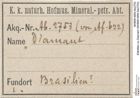 K. k. naturh. Hofmus. Mineral.-petr. Abt.
Akq.-Nr. Ab. 2753 (von Af. 622)
Name Diamant
Fundort Brasilien!